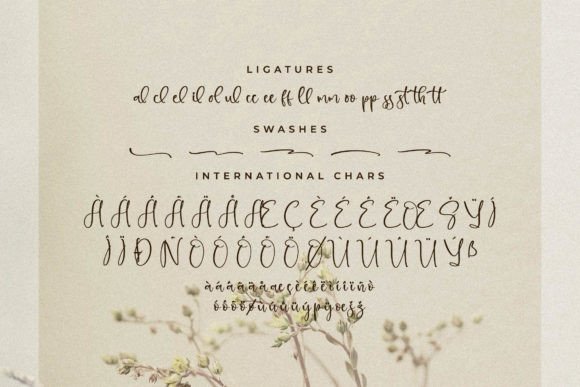 LIGATURES
al cl el il ol ul cc ee ff ll mm oo pp ss st th tt
SWASHES
INTERNATIONAL CHARS
ÀÁÂÃÄÅÆÇÈÉÊËŒŠŸÌ
ÍÏÐÑÒÓÔÕÖØÙÚÛÜÝß
àáâãäåæçèéêëìíîïñò
óôõöøùúûüýþÿœšž